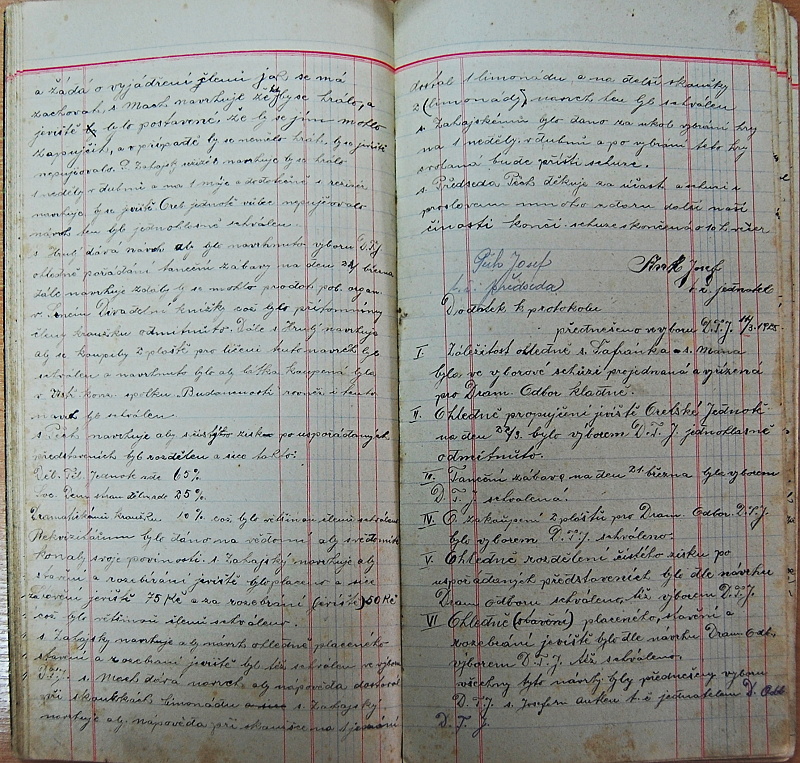 a žádá o vyjádření členů jak se má
zachovati, s. Mach navrhuje že by se hrálo, a
jeviště bylo postavené že by se jim mohlo
zapujčit, a v případě by se nemělo hrát, by se jeviště
nepujčovalo. s. Zahajský navrhuje by se hrálo
1 neděli v dubnu a na 1 máje a dodatečně s. režisér
navrhuje by se jeviště Orel. jednotě vůbec nepujčovalo
návrh ten byl jednohlasně schválen.
s. Hrulý dává návrh aby bylo navrhnuto výboru D.T.J.
ohledně pořádání taneční zábavy na den 21/ března
dále navrhuje zdaly by se mohlo prodati pob. agan.
Divadelní knížky což bylo přítomnými
členy kroužku odmítnuto. Dále s. Hrulý navrhuje
aby se koupily 2 pláště pro líčení tento návrh byl
schválen a navrhnuto bylo aby látka koupená byla
v konz. spolku Budoucnosti rovněž i tento
návrh byl schválen
s. Pech navrhuje aby čistý zisk po uspořádaných
představeních byl rozdělen a sice takto:
Děl. Těl. Jednotě 65%
Soc. Dem. straně dělnické 25%
Dramatickému kroužku 10% což bylo většinou členů schváleno
Rekvizitářům bylo dáno na vědomí aby svědomitě
konaly svoje povinosti. s. Zahajský navrhuje aby
stavění a rozebírání jeviště bylo placeno a sice
za stavění jeviště 75 Kč a za rozebrání (jeviště) 50 Kč
což bylo většinou členů schváleno.
s. Zahajský navrhuje aby návrh ohledně placeného
stavění a rozebrání jeviště byl též schválen ve výboru
D.T.J. s. Mach dává návrh aby nápověda dostával
při zkouškách limonádu a sice s. Zahajský
navrhuje aby nápověda při zkoušce na 1 jednání
dostal 1 limonádu a na delší zkoušky
2 (limonády) návrh ten byl schválen
s. Zahajskému bylo dáno za úkol vybrání hry
na 1 neděly v dubnu a po vybrání této hry
svolaná bude příští schuze.
s. Předseda Pech děkuje za učast a schuzi s
proslovem mnoho zdaru další naší
činosti končí. schuze skončena o 10 h. večer
Pech Josef
t. č. předseda
Josef
t. č. jednatel
Dodatek k protokolu
přednešeno výboru D.T.J. 14/3. 1925
I. Záležitost ohledně s. Šafránka a s. Macha
byla ve výborové schůzi projednaná a vyřízená
pro Dram. Odbor kladně.
II. Ohledně propujčení jeviště Orelské Jednotě
na den 22/3. bylo výborem D.T.J. jednohlasně
odmítnuto.
III. Taneční zábava na den 21. března byla výborem
D.T.J. schválená.
IV. O zakoupení 2 plášťů pro Dram. Odbor. D.T.J.
bylo výborem D.T.J. schváleno.
V. Ohledně rozdělení čistého zisku po
uspořádaných představeních bylo dle návrhu
Dram. odboru schváleno, též výborem D.T.J.
VI Ohledně (stavění) placeného, stavění a
rozebrání jeviště bylo dle návrhu Dram. Odb.
výborem D.T.J. též schváleno.
všechny tyto návrhy byly předneseny výboru
D.T.J. s. Josefem t. č. jednatelem D. Odb.
D. T. J.